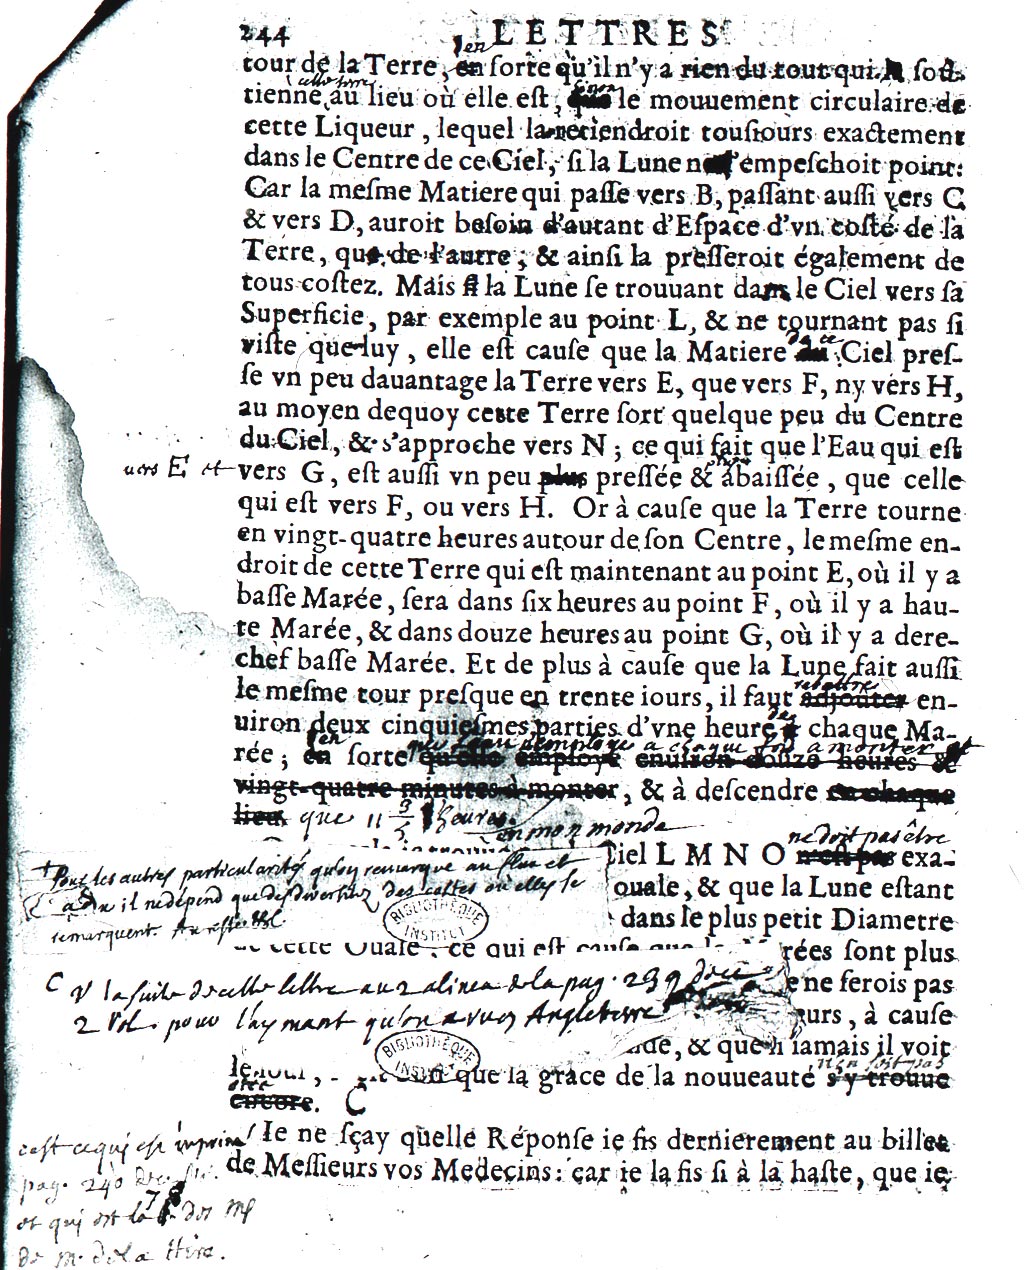 244 LETTRES
en
tour de la Terre, en sorte qu'il n'y a rien du tout qui la soû-
cette terre sinon
tienne au lieu où elle est, que le mouuement circulaire de
cette Liqueur, lequel la retiendroit tousiours exactement
dans le Centre de ce Ciel, si la Lune ne l'empeschoit point:
Car la mesme Matiere qui passe vers B, passant aussi vers C
& vers D, auroit besoin d'autant d'Espace d'vn costé de la
Terre, que de l'autre; & ainsi la presseroit également de
tous costez. Mais si la Lune se trouuant dans le Ciel vers sa
Superficie, par exemple au point L, & ne tournant pas si
de ce
viste que luy, elle est cause que la Matiere du Ciel pres-
se vn peu dauantage la Terre vers E, que vers F, ny vers H,
au moyen dequoy cette Terre sort quelque peu du Centre
du Ciel, & s'approche vers N; ce qui fait que l'Eau qui est
vers E et
vers G, est aussi vn peu plus pressée & abaissée, que celle
qui est vers F, ou vers H. Or à cause que la Terre tourne
en vingt-quatre heures autour de son Centre, le mesme en-
droit de cette Terre qui est maintenant au point E, où il y a
basse Marée, sera dans six heures au point F, où il y a hau-
te Marée, & dans douze heures au point G, où il y a dere-
chef basse Marée. Et de plus à cause que la Lune fait aussi
rabattre
le mesme tour presque en trente iours, il faut adjouter en-
des
uiron deux cinquiesmes parties d'vne heure à chaque Ma-
en que l'eau n'employe a chaque fois a monter et
rée; en sorte qu'elle employe enuiron douze heures &
vingt-quatre minutes à monter, & à descendre en chaque
lieu. que 11 3/5 heures.
en mon monde
ne doit pas être
Ciel L M N O n'est pas exa-
ouale, & que la Lune estant
dans le plus petit Diametre
de cette Ouale; ce qui est cause que les Marées sont plus
+ Pour les autres particularités qu'on remarque au flux et
il ne dépend que des diversitez des costes où elles se
remarquent. Au reste
BIBLIOTHÈQUE INSTITUT
C V la suite de cette lettre au 2 alinea de la pag. 239 du
2 Vol. pour l'aymant qu'on a vu en Angleterre
BIBLIOTHÈQUE INSTITUT
ne ferois pas
eurs, à cause
de, & que si iamais il voit
n'en soit pas
le jour, que la grace de la nouueauté s'y trouue
otée
encore. C
c'est ce qui est imprimé
pag. 240
et qui est la 78 des MS
de M. de la Hire.
Ie ne sçay quelle Réponse ie fis dernierement au billet
de Messieurs vos Medecins: car ie la fis si à la haste, que ie